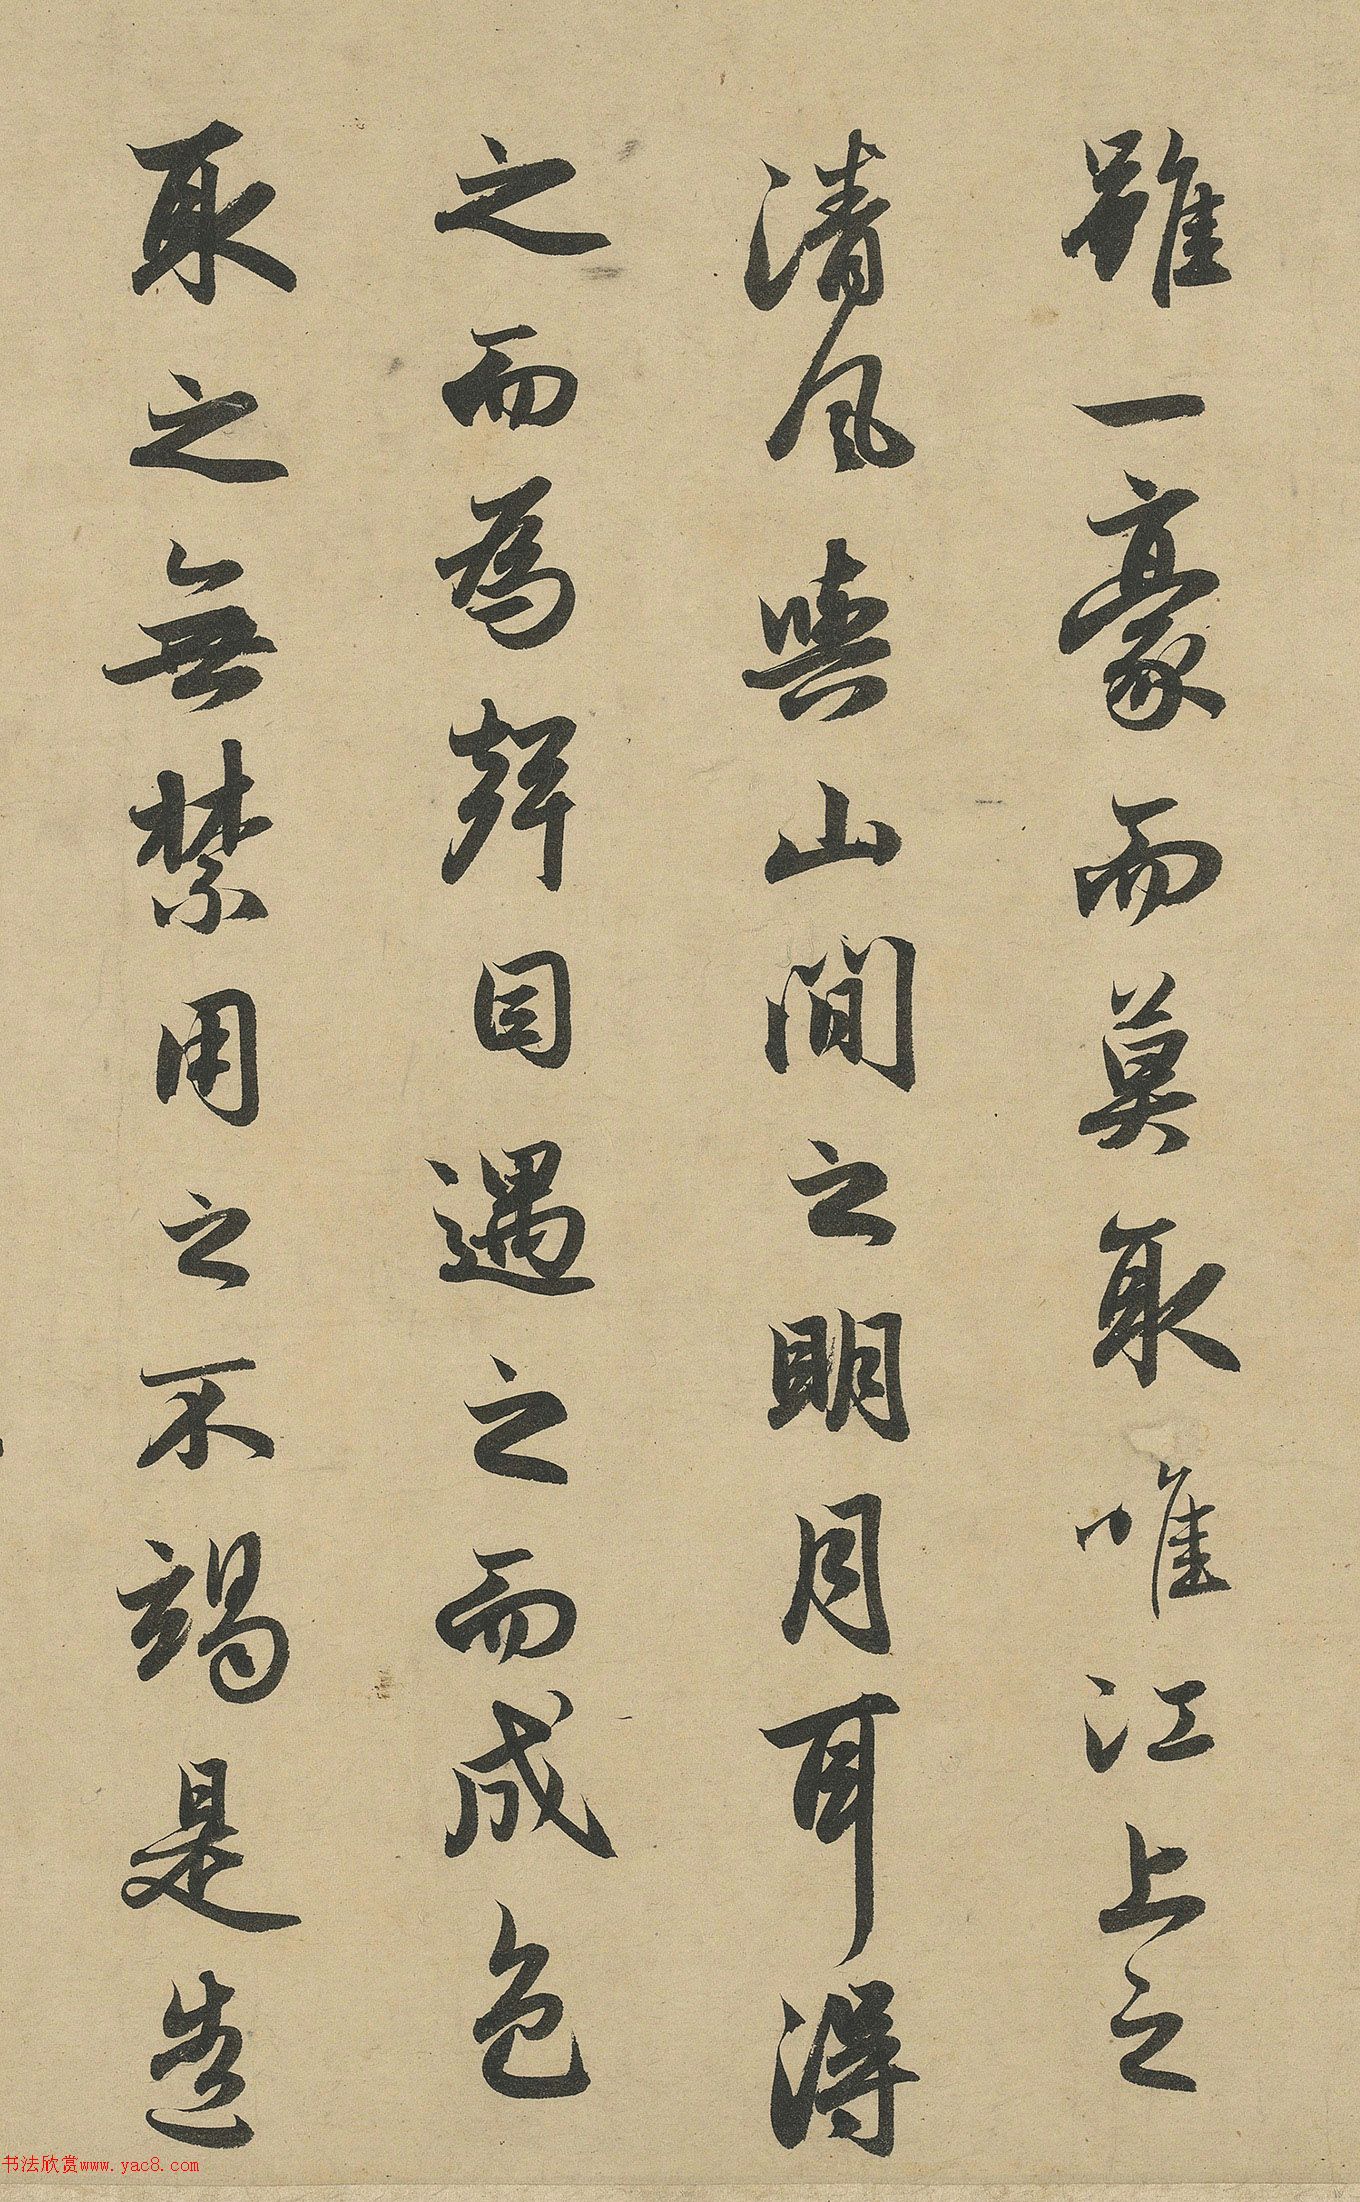 雖一豪而莫取唯江上之
清風與山間之明月耳得
之而為聲目遇之而成色
取之無禁用之不竭是造
书法欣赏www.yac8.com